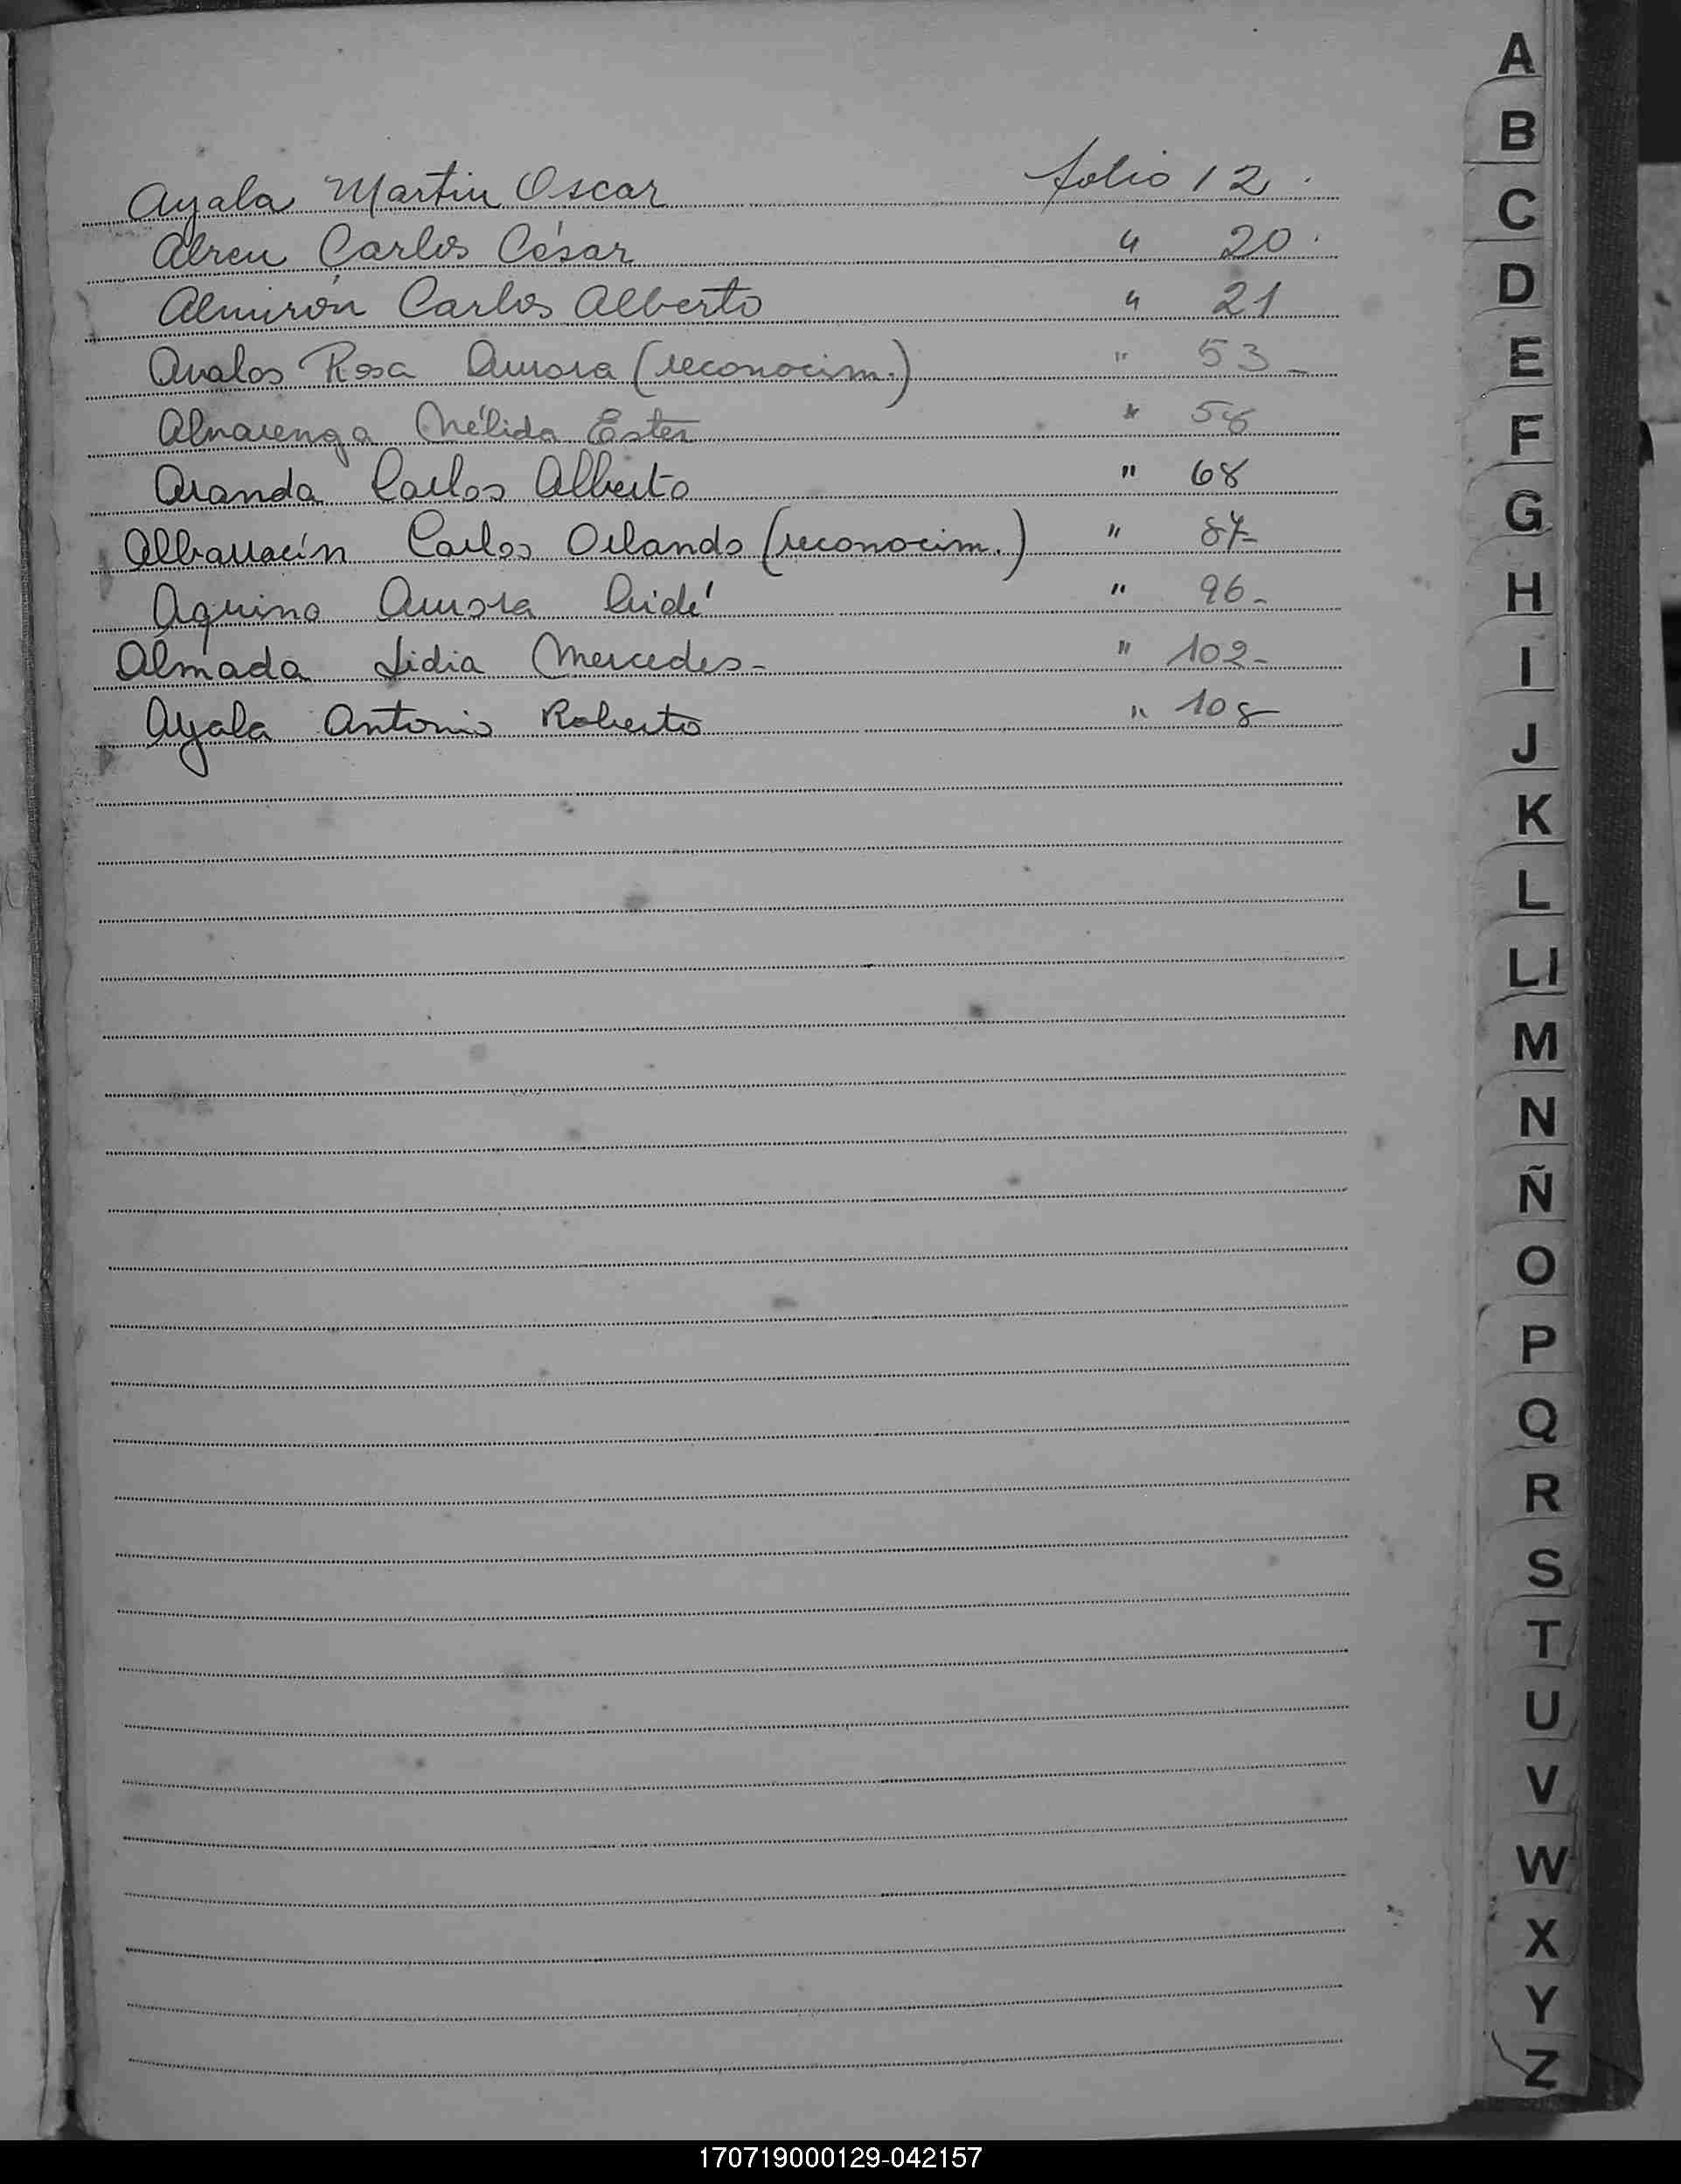 Ayala Martin Oscar folio 12.
Abreu Carlos César " 20.
Almirón Carlos Alberto " 21
Avalos Rosa Aurora (reconocim.) " 53-
Alvarenga Mélida Ester "
Aranda Carlos Alberto " 68
Albarracín Carlos Orlando (reconocim.) " 87-
Aquino Aurora " 96-
Almada Lidia Mercedes- " 102-
Ayala Antonio Roberto " 108
A
B
C
D
E
F
G
H
I
J
K
L
Ll
M
N
Ñ
O
P
Q
R
S
T
U
V
W
X
Y
Z
170719000129-042157